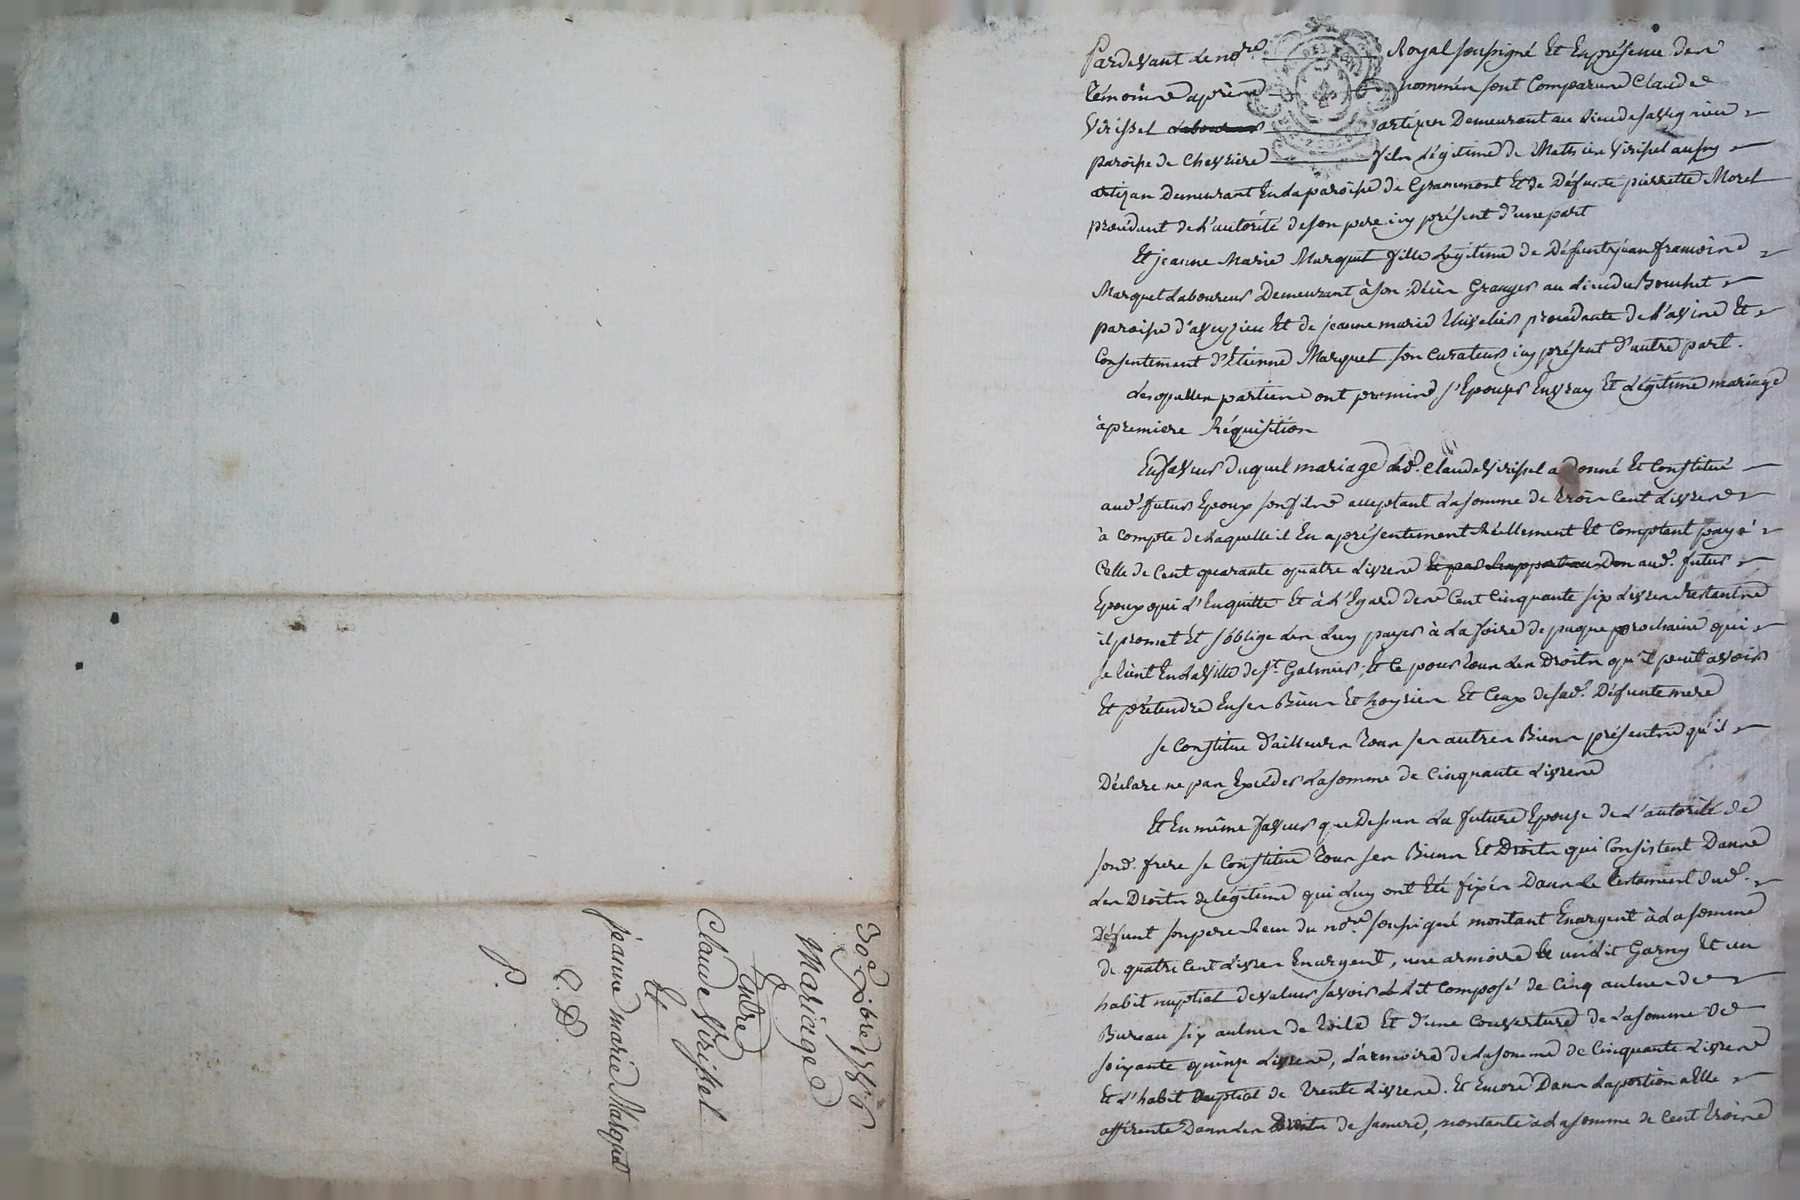 30e xbre 1786
Mariage
Entre
Claude Virissel
Et
jeanne marie Marquet
C. D.
P.
Pardevant Le nore Royal soussigné Et En présence des
témoins après nommés sont Comparus Claude
Virissel Laboureur artizan Demeurant au Lieu de
paroisse de Chevriere fils Légitime de Mathieu Virissel aussy
artizan Demeurant En La paroisse de Grammont Et de Défunte pierrette Morel
procédant de L'autorité de son pere icy présent d'une part
Et jeanne Marie Marquet fille Légitime de Défunt jean francois
Marquet Laboureur Demeurant à son Décès Granger au Lieu du Bouchet
paroisse d'aveyzieu Et de jeanne marie procédante de L'avis Et
Consentement d'Etienne Marquet son Curateur icy présent d'autre part.
Lesquelles parties ont promis s'Epouser En vray Et Légitime mariage
à premiere Réquisition
En faveur duquel mariage Led. Claude Virissel a Donné Et Constitué
aud. futur Epoux son fils acceptant La somme de trois Cent Livres
à Compte de Laquelle il En a présentement Réellement Et Comptant payé
Celle de Cent quarante quatre Livres aud. futur
Epoux qui L'En quitte Et à L'Egard des Cent Cinquante six Livres Restantes
il promet Et s'oblige Les Luy payer à La foire de paque prochaine qui
se tient En La Ville de St. Galmier, Et Ce pour tous Les Droits qu'il peut avoir
Et prétendre En ses Biens Et hoyries Et Ceux de sad. Défunte mere
se Constitue d'ailleurs tous ses autres Biens présents qu'il
Déclare ne pas Excéder La somme de Cinquante Livres
Et En même faveur que Dessus La future Epouse de L'autorité de
sond. frere se Constitue tous ses Biens Et Droits qui Consistent Dans
Les Droits de légitime qui Luy ont Eté fixés Dans Le testament dud.
Défunt son pere Reçu du nore soussigné montant En argent à La somme
de quatre Cent Livres En argent, une armoire un Lit Garny Et un
habit nuptial de valeur savoir Le Lit Composé de Cinq aulnes de
Bureau six aulnes de toile Et d'une Couverture de La somme de
soixante quinze Livres, L'armoire de La somme de Cinquante Livres
Et L'habit nuptial de trente Livres. Et Encore Dans La portion a Elle
afférente Dans Les Droits de sa mere, montante à La somme de Cent trois